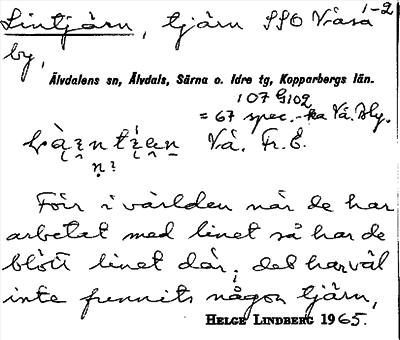 Lintjärn, tjärn SSO Våsa 1-2
by,
Älvdalens sn, Älvdals, Särna o. Idre tg, Kopparbergs län.
107 G102
= 67 spec.-ka Vå. Bly.
Vå. Fr. E.
Förr i världen när de har
arbetat med linet så har de
blött linet där, det har väl
inte funnits någon tjärn,
HELGE LINDBERG 1965.